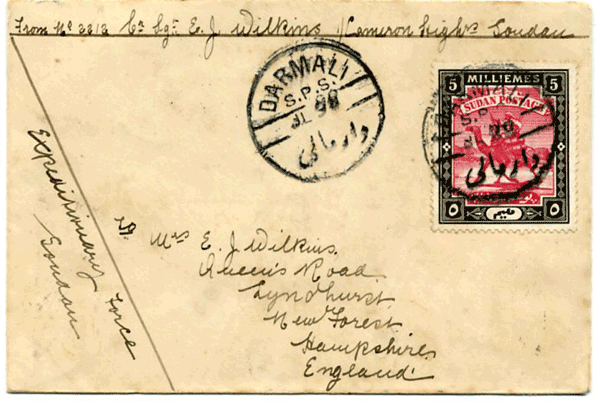 From No 3313 Cr Sgt. E. J. Wilkins 1/Cameron Highrs Soudan
DARMALI
S.P.S.
JL 98
دارمالي
5 MILLIEMES 5
SUDAN POSTAGE
DARMALI
S.P.
98
دارمالي
٥ مليم ٥
Expeditionary Force
Soudan
To Mrs E. J. Wilkins.
Queen's Road
Lyndhurst
New Forest
Hampshire
England.